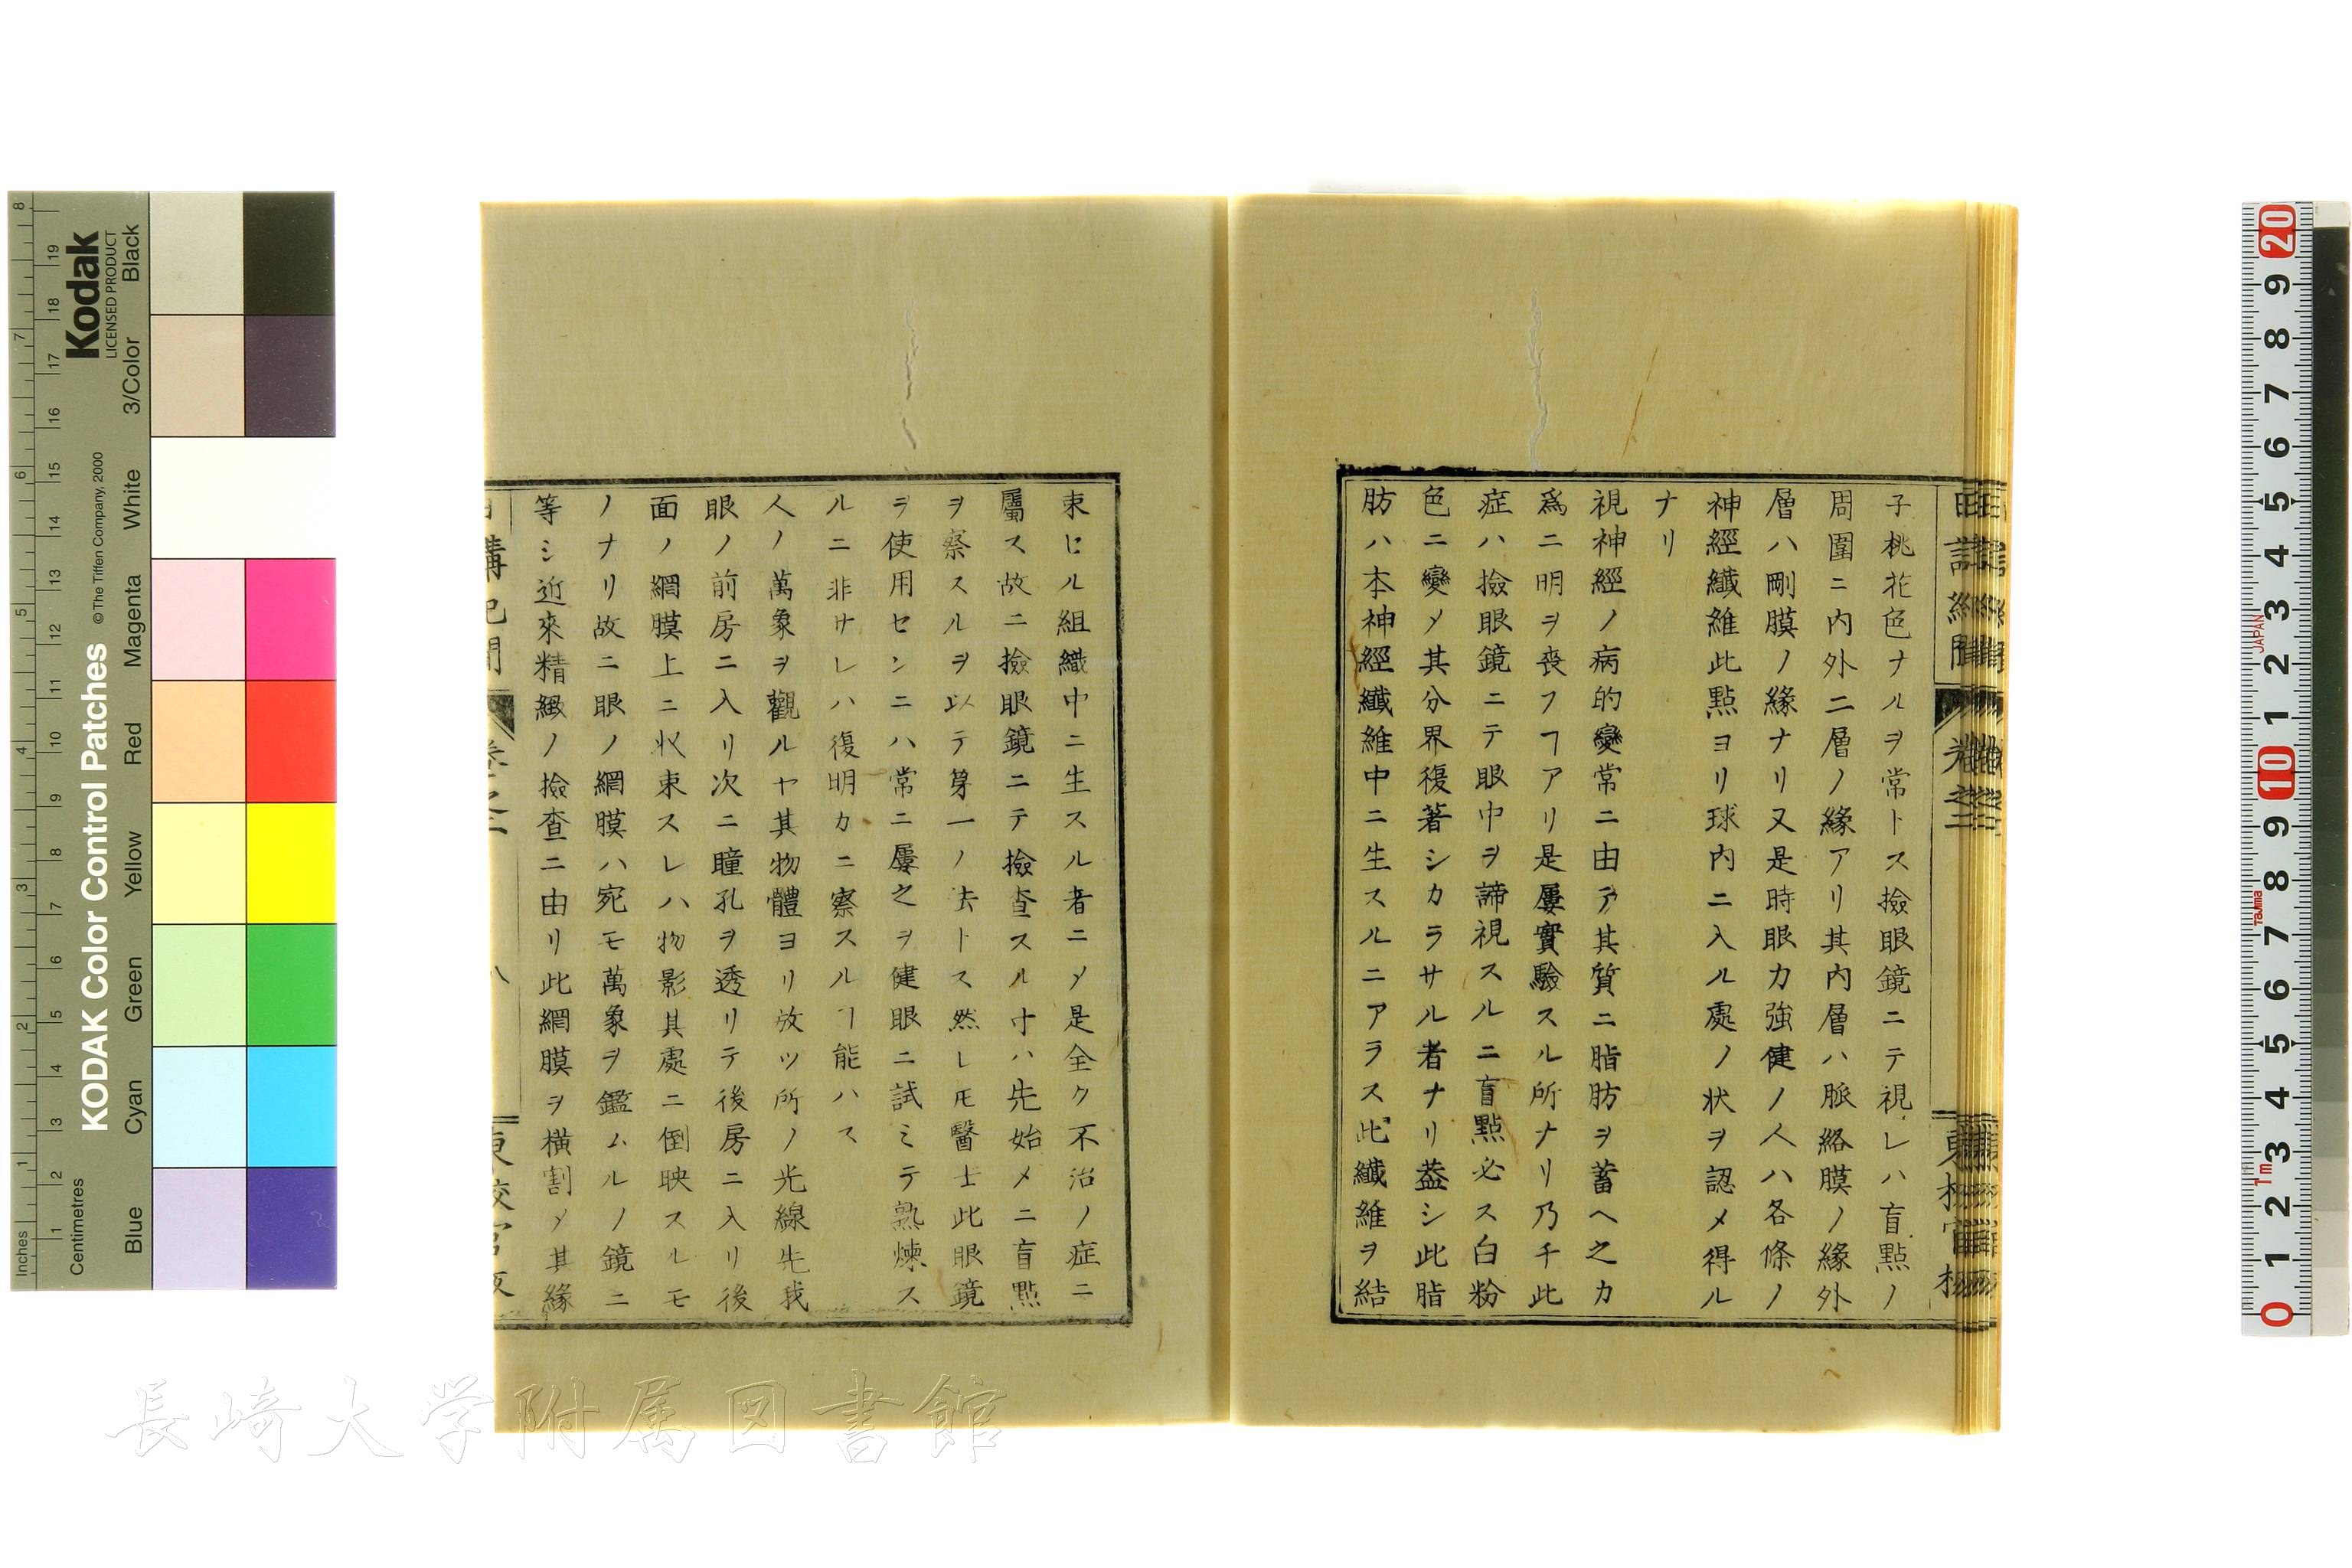 子桃花色ナルヲ常トス撿眼鏡ニテ視レハ盲點ノ
周圍ニ内外二層ノ緣アリ其内層ハ脈絡膜ノ緣外
層ハ剛膜ノ緣ナリ又是時眼力強健ノ人ハ各條ノ
神經纖維此點ヨリ球内ニ入ル處ノ状ヲ認メ得ル
ナリ
視神經ノ病的變常ニ由テ其質ニ脂肪ヲ蓄ヘ之カ
爲ニ明ヲ喪フヿアリ是屢實驗スル所ナリ乃チ此
症ハ撿眼鏡ニテ眼中ヲ諦視スルニ盲點必ス白粉
色ニ變〆其分界復著シカラサル者ナリ葢シ此脂
肪ハ本神經纖維中ニ生スルニアラス此纖維ヲ結
束ヒル組織中ニ生スル者ニ〆是全ク不治ノ症ニ
屬ス故ニ撿眼鏡ニテ撿查スル寸ハ先始メニ盲點
ヲ察スルヲ以テ第一ノ法トス然レ𪜈醫士此眼鏡
ヲ使用センニハ常ニ屢之ヲ健眼ニ試ミテ熟煉ス
ルニ非サレハ復明カニ察スルヿ能ハス
人ノ萬象ヲ觀ルヤ其物體ヨリ放ツ所ノ光線先我
眼ノ前房ニ入リ次ニ瞳孔ヲ透リテ後房ニ入リ後
面ノ網膜上ニ收束スレハ物影其處ニ倒映スルモ
ノナリ故ニ眼ノ網膜ハ宛モ萬象ヲ鑑ムルノ鏡ニ
等シ近來精緻ノ撿查ニ由リ此網膜ヲ橫割〆其緣
講記聞
卷之二
八
東校官版
長崎大学附属図書館
KODAK Color Control Patches
© The Tiffen Company, 2000
Kodak
LICENSED PRODUCT
Inches
Centimetres
Blue
Cyan
Green
Yellow
Red
Magenta
White
3/Color
Black
JAPAN
Tajima
1m